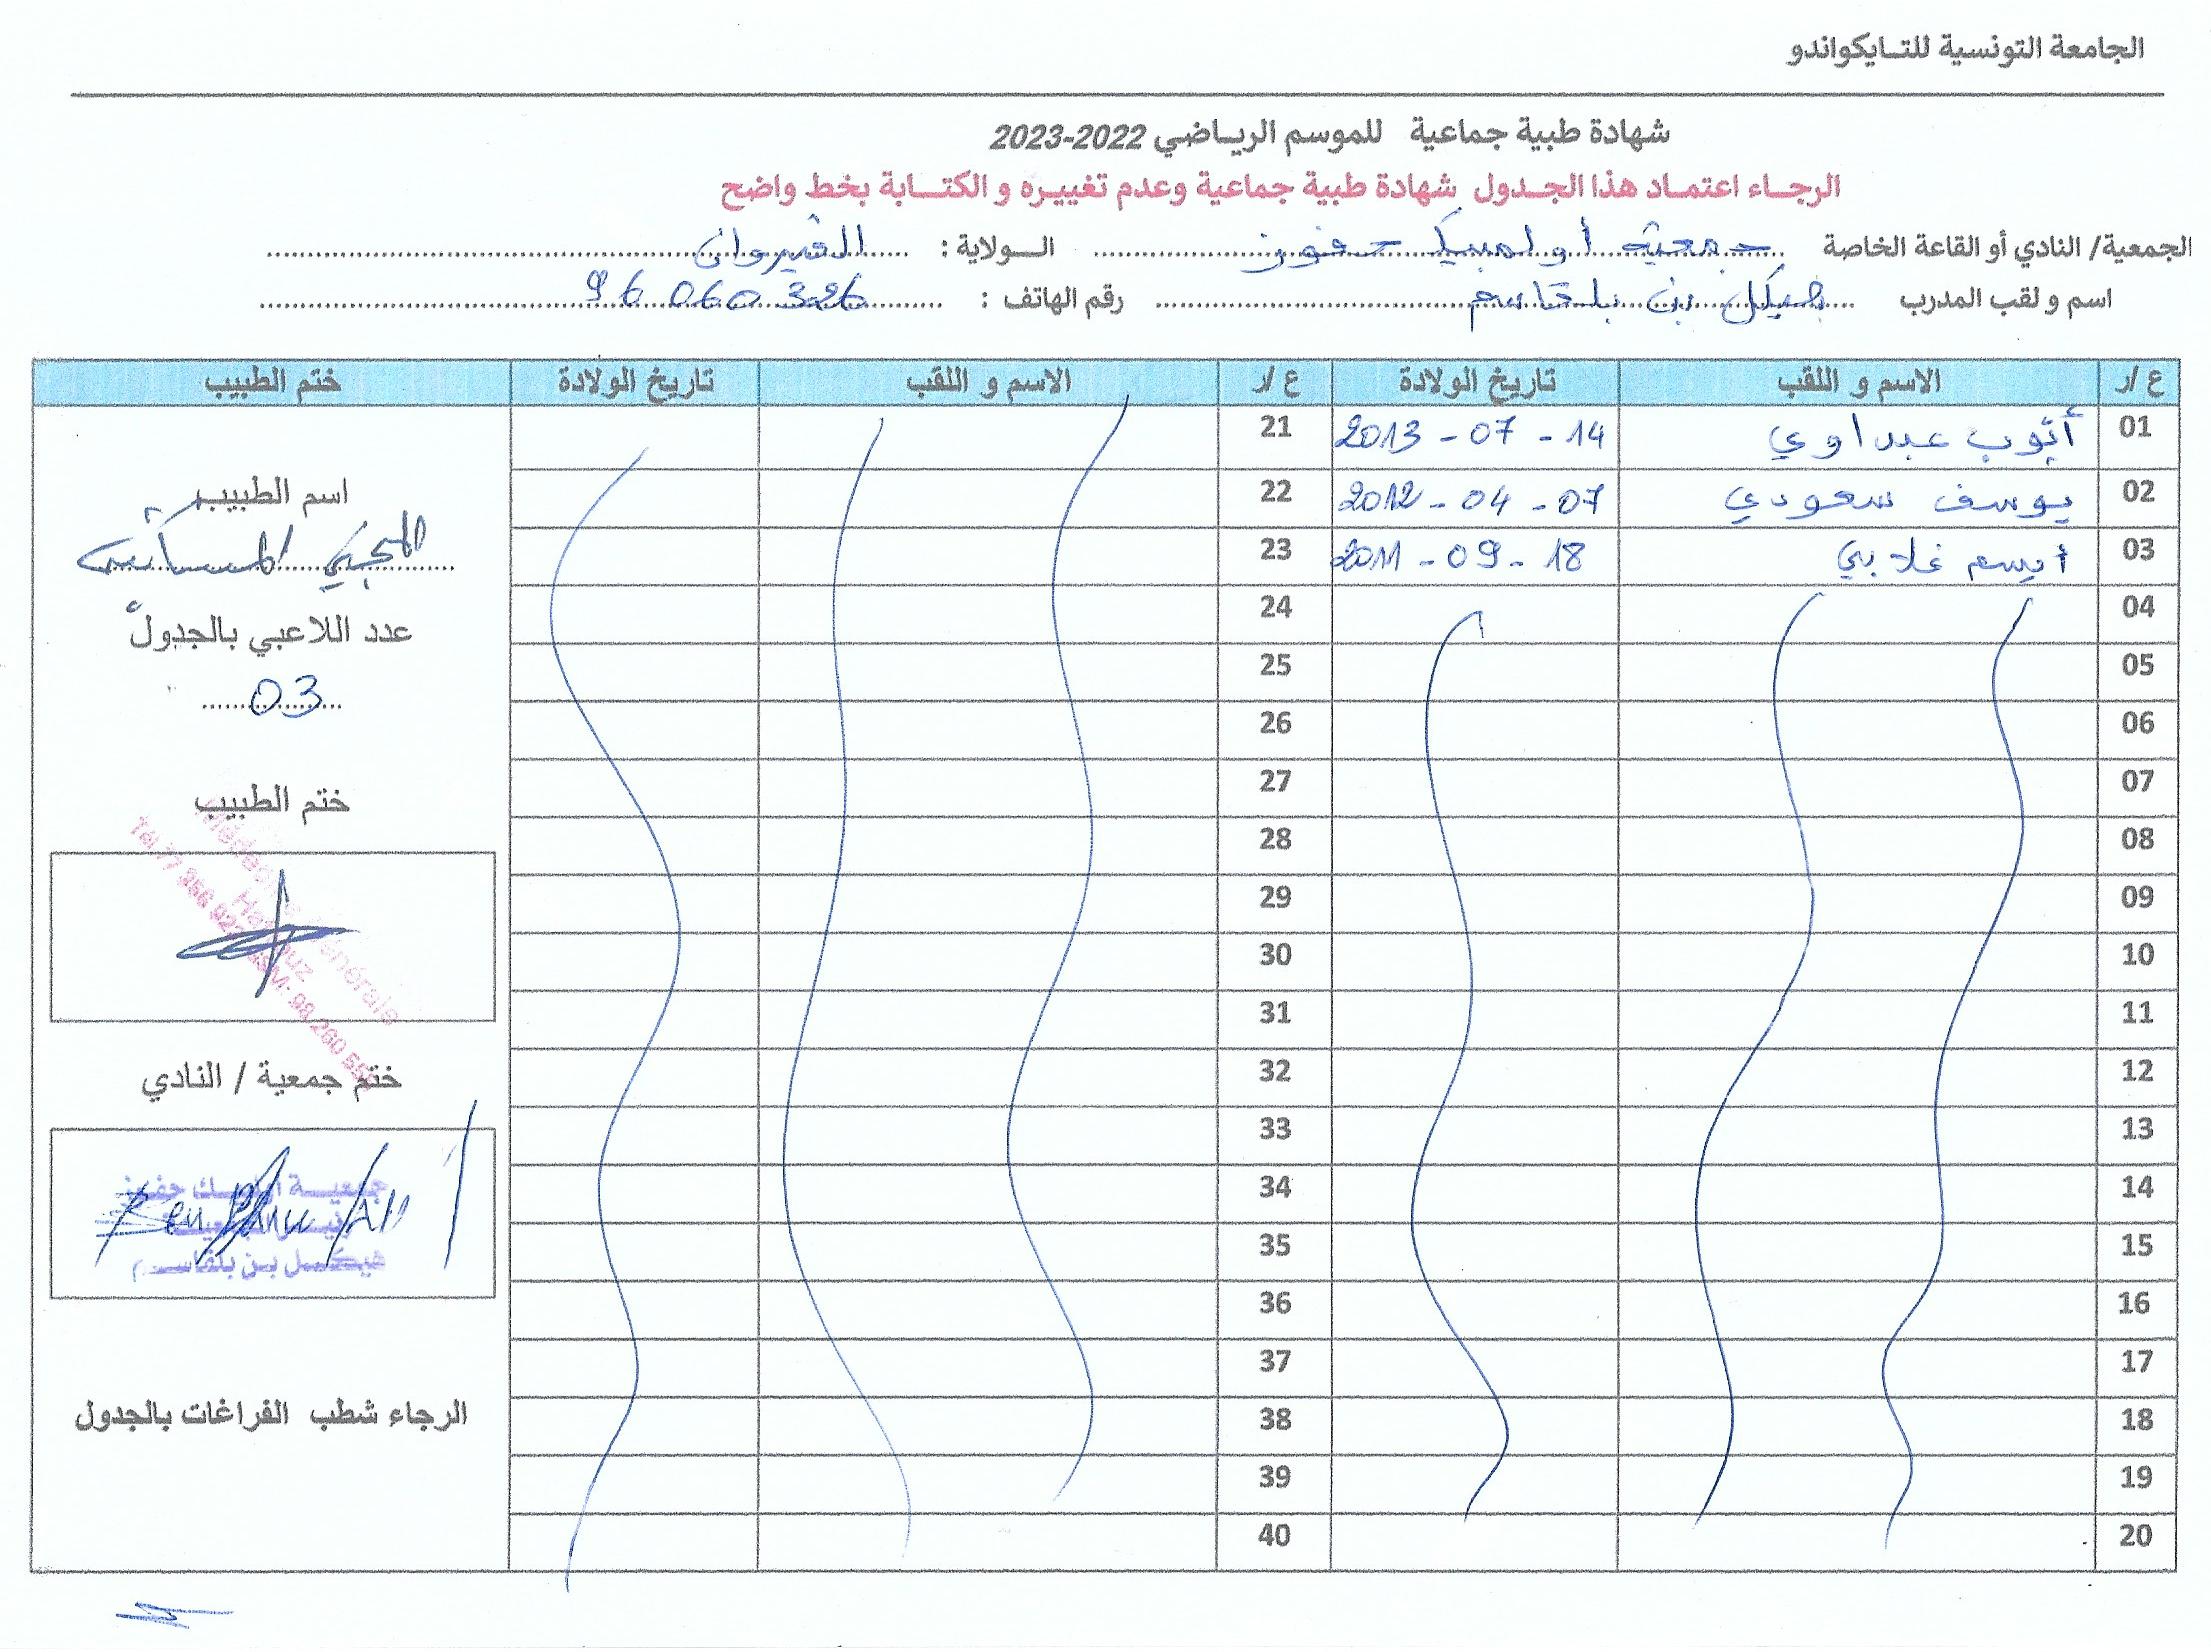 الجامعة التونسية للتـايكواندو
شهادة طبية جماعية للموسم الريـاضي 2022-2023
الرجـاء اعتمـاد هذا الجـدول شهادة طبية جماعية وعدم تغييـره و الكتـابة بخط واضح
الجمعية/ النادي أو القاعة الخاصة جمعية أولمبيك حفوز الـولاية : القيروان
اسم و لقب المدرب هيكل بن بلقاسم رقم الهاتف : 96 060 326
ع /ر الاسم و اللقب تاريخ الولادة ع /ر الاسم و اللقب تاريخ الولادة ختم الطبيب
01 أيوب عبداوي 2013 - 07 - 14 21
02 يوسف سعودي 2012 - 04 - 07 22
03 أيسم غلابي 2011 - 09 - 18 23
04 24
05 25
06 26
07 27
08 28
09 29
10 30
11 31
12 32
13 33
14 34
15 35
16 36
17 37
18 38
19 39
20 40
اسم الطبيب
عدد اللاعبي بالجدول
03
ختم الطبيب
ختم جمعية / النادي
جمعيـة أولمبيـك حفـوز
هيكـل بـن بلقاسـم
الرجاء شطب الفراغات بالجدول